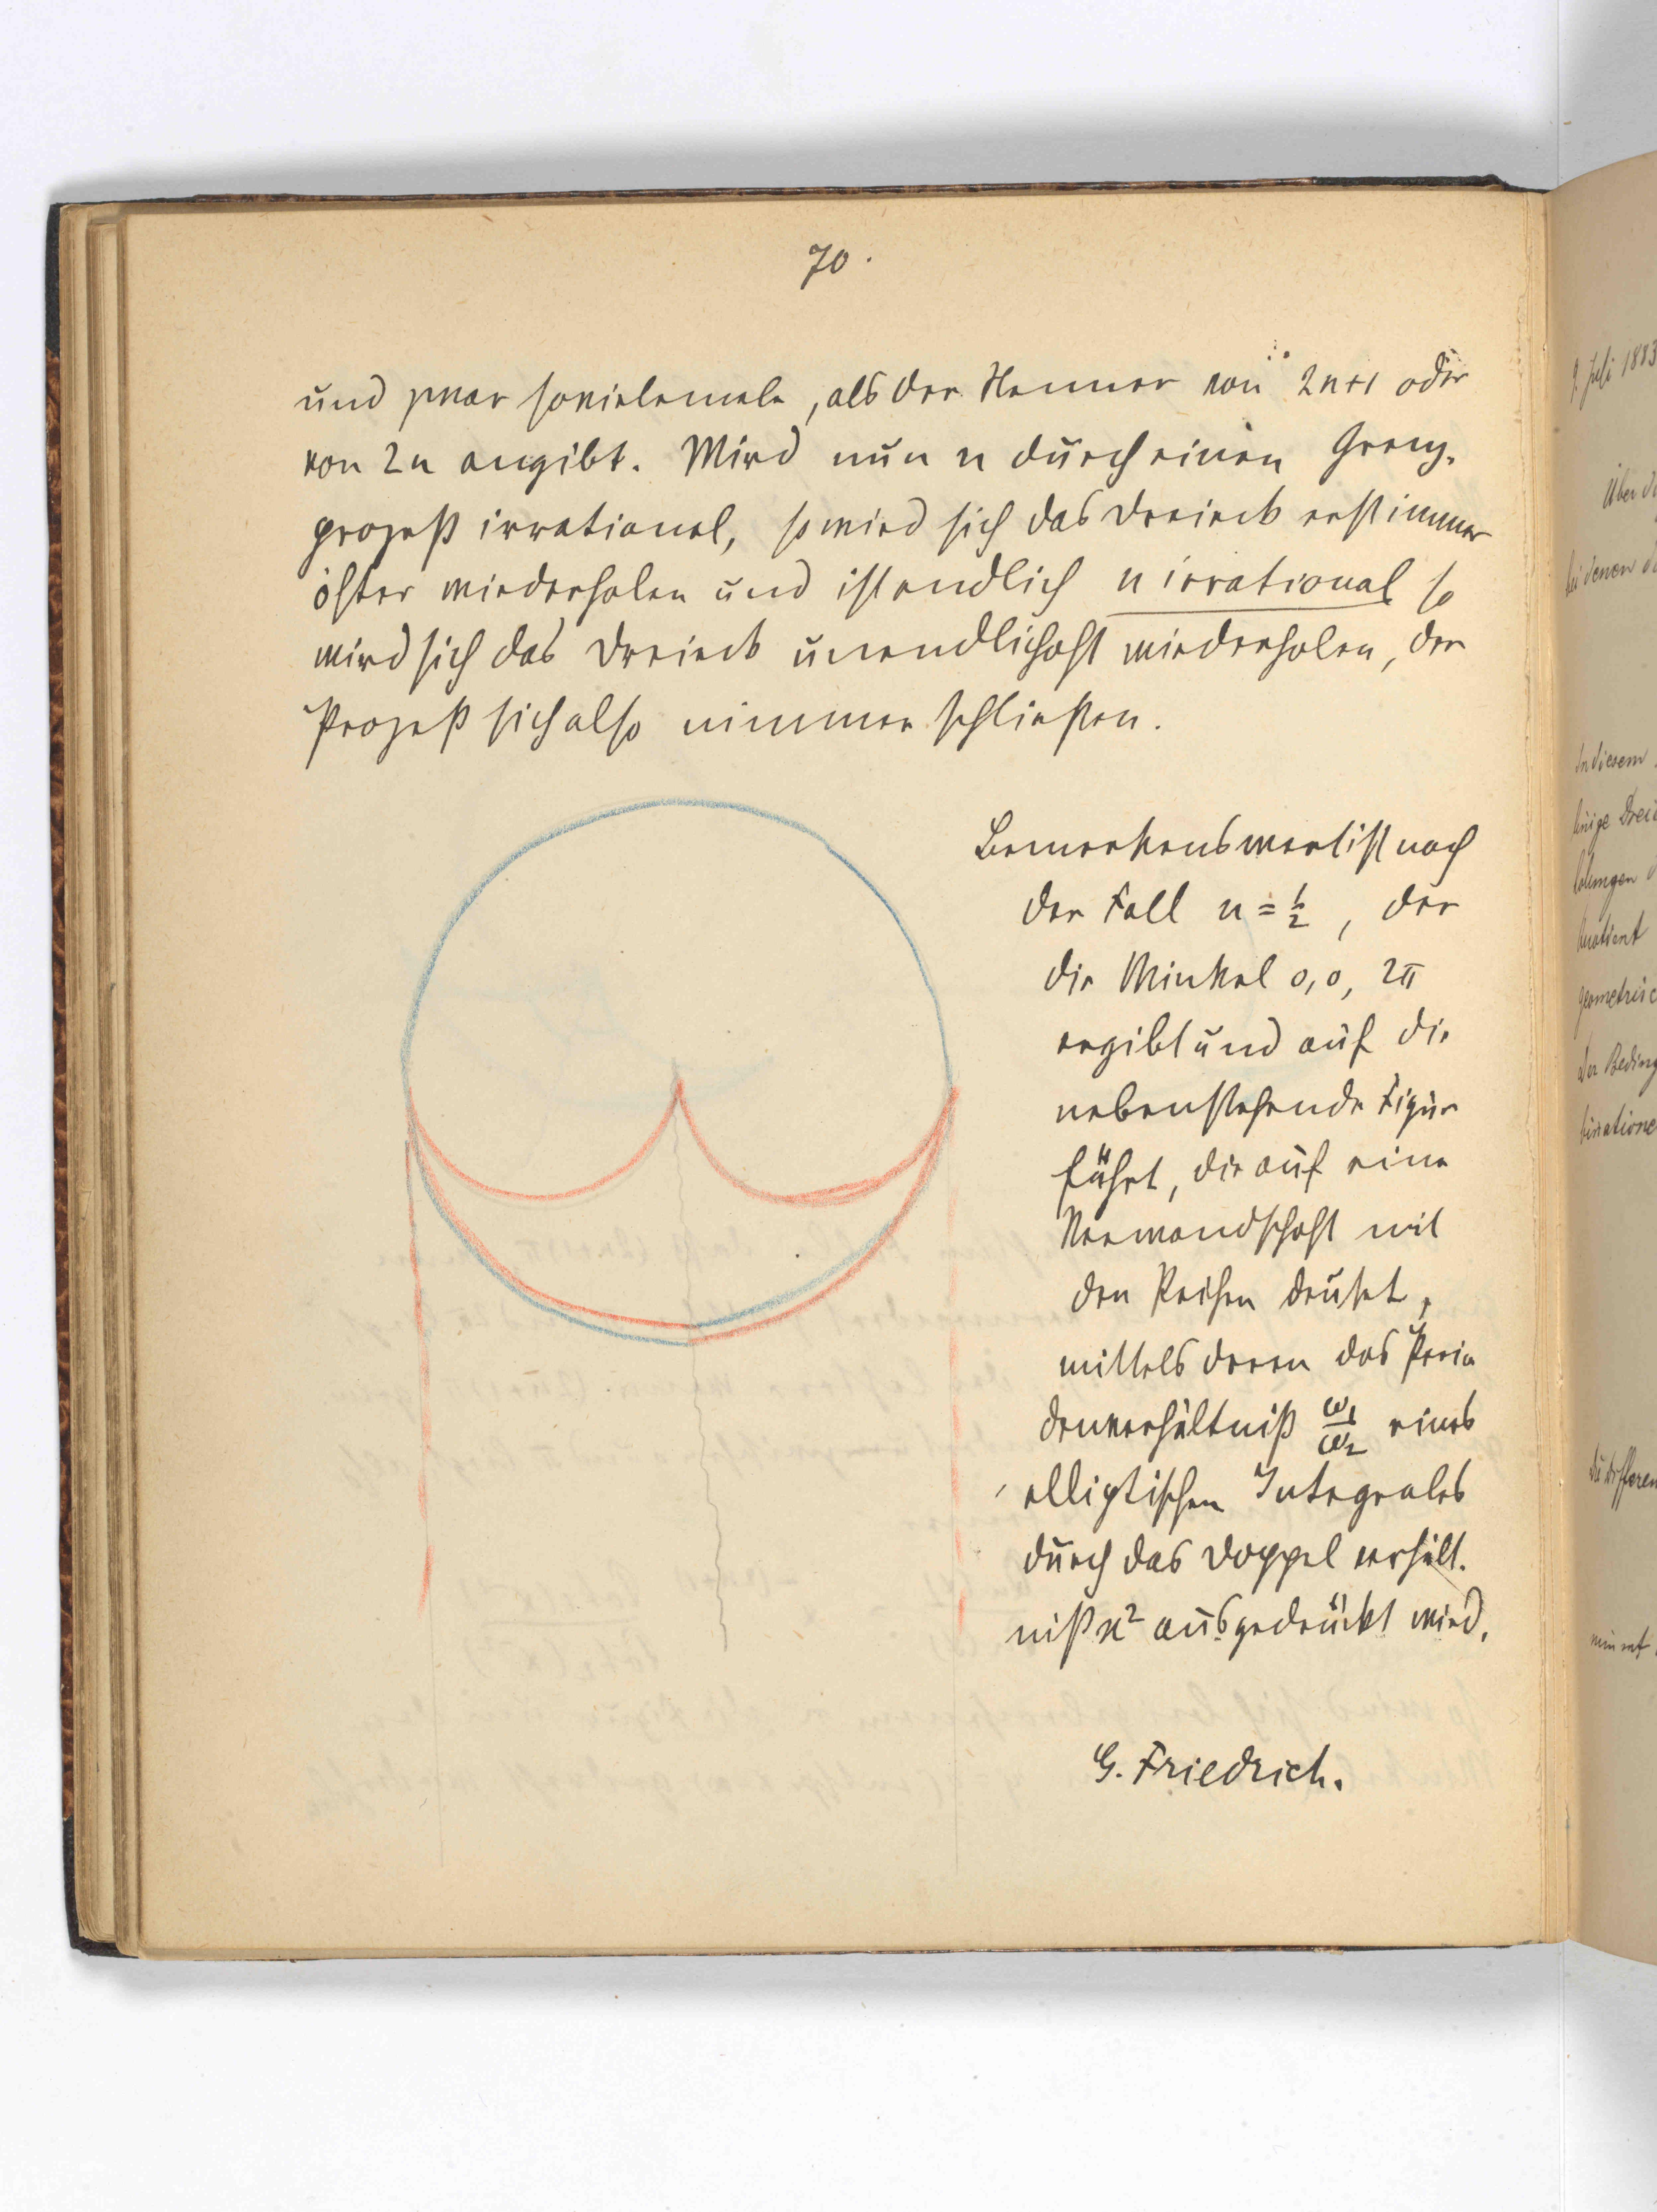 70.
und zwar sovielemale, als der Nenner von 2n+1 oder
von 2n angibt. Wird nun n durch einen Grenz-
prozeß irrational, so wird sich das Dreieck erst immer
öfter wiederholen und ist endlich n irrational so
wird sich das Dreieck unendlich oft wiederholen, der
Prozeß sich also nimmer schließen.
Bemerkenswert ist noch
der Fall n = 1/2, der
die Winkel 0, 0, 2π
ergibt und auf die
nebenstehende Figur
führt, die auf eine
Verwandschaft mit
den Reihen deutet,
mittels deren das Perio
denverhältniß ω1/ω2 eines
elliptischen Integrales
durch das Doppelverhält-
niß ϰ² ausgedrückt wird.
G. Friedrich.
9. Juli 1883
Über d
bei denen d
In diesem
linige Drei
Quotient
geometrisc
der Beding
Die Differen
nimmt